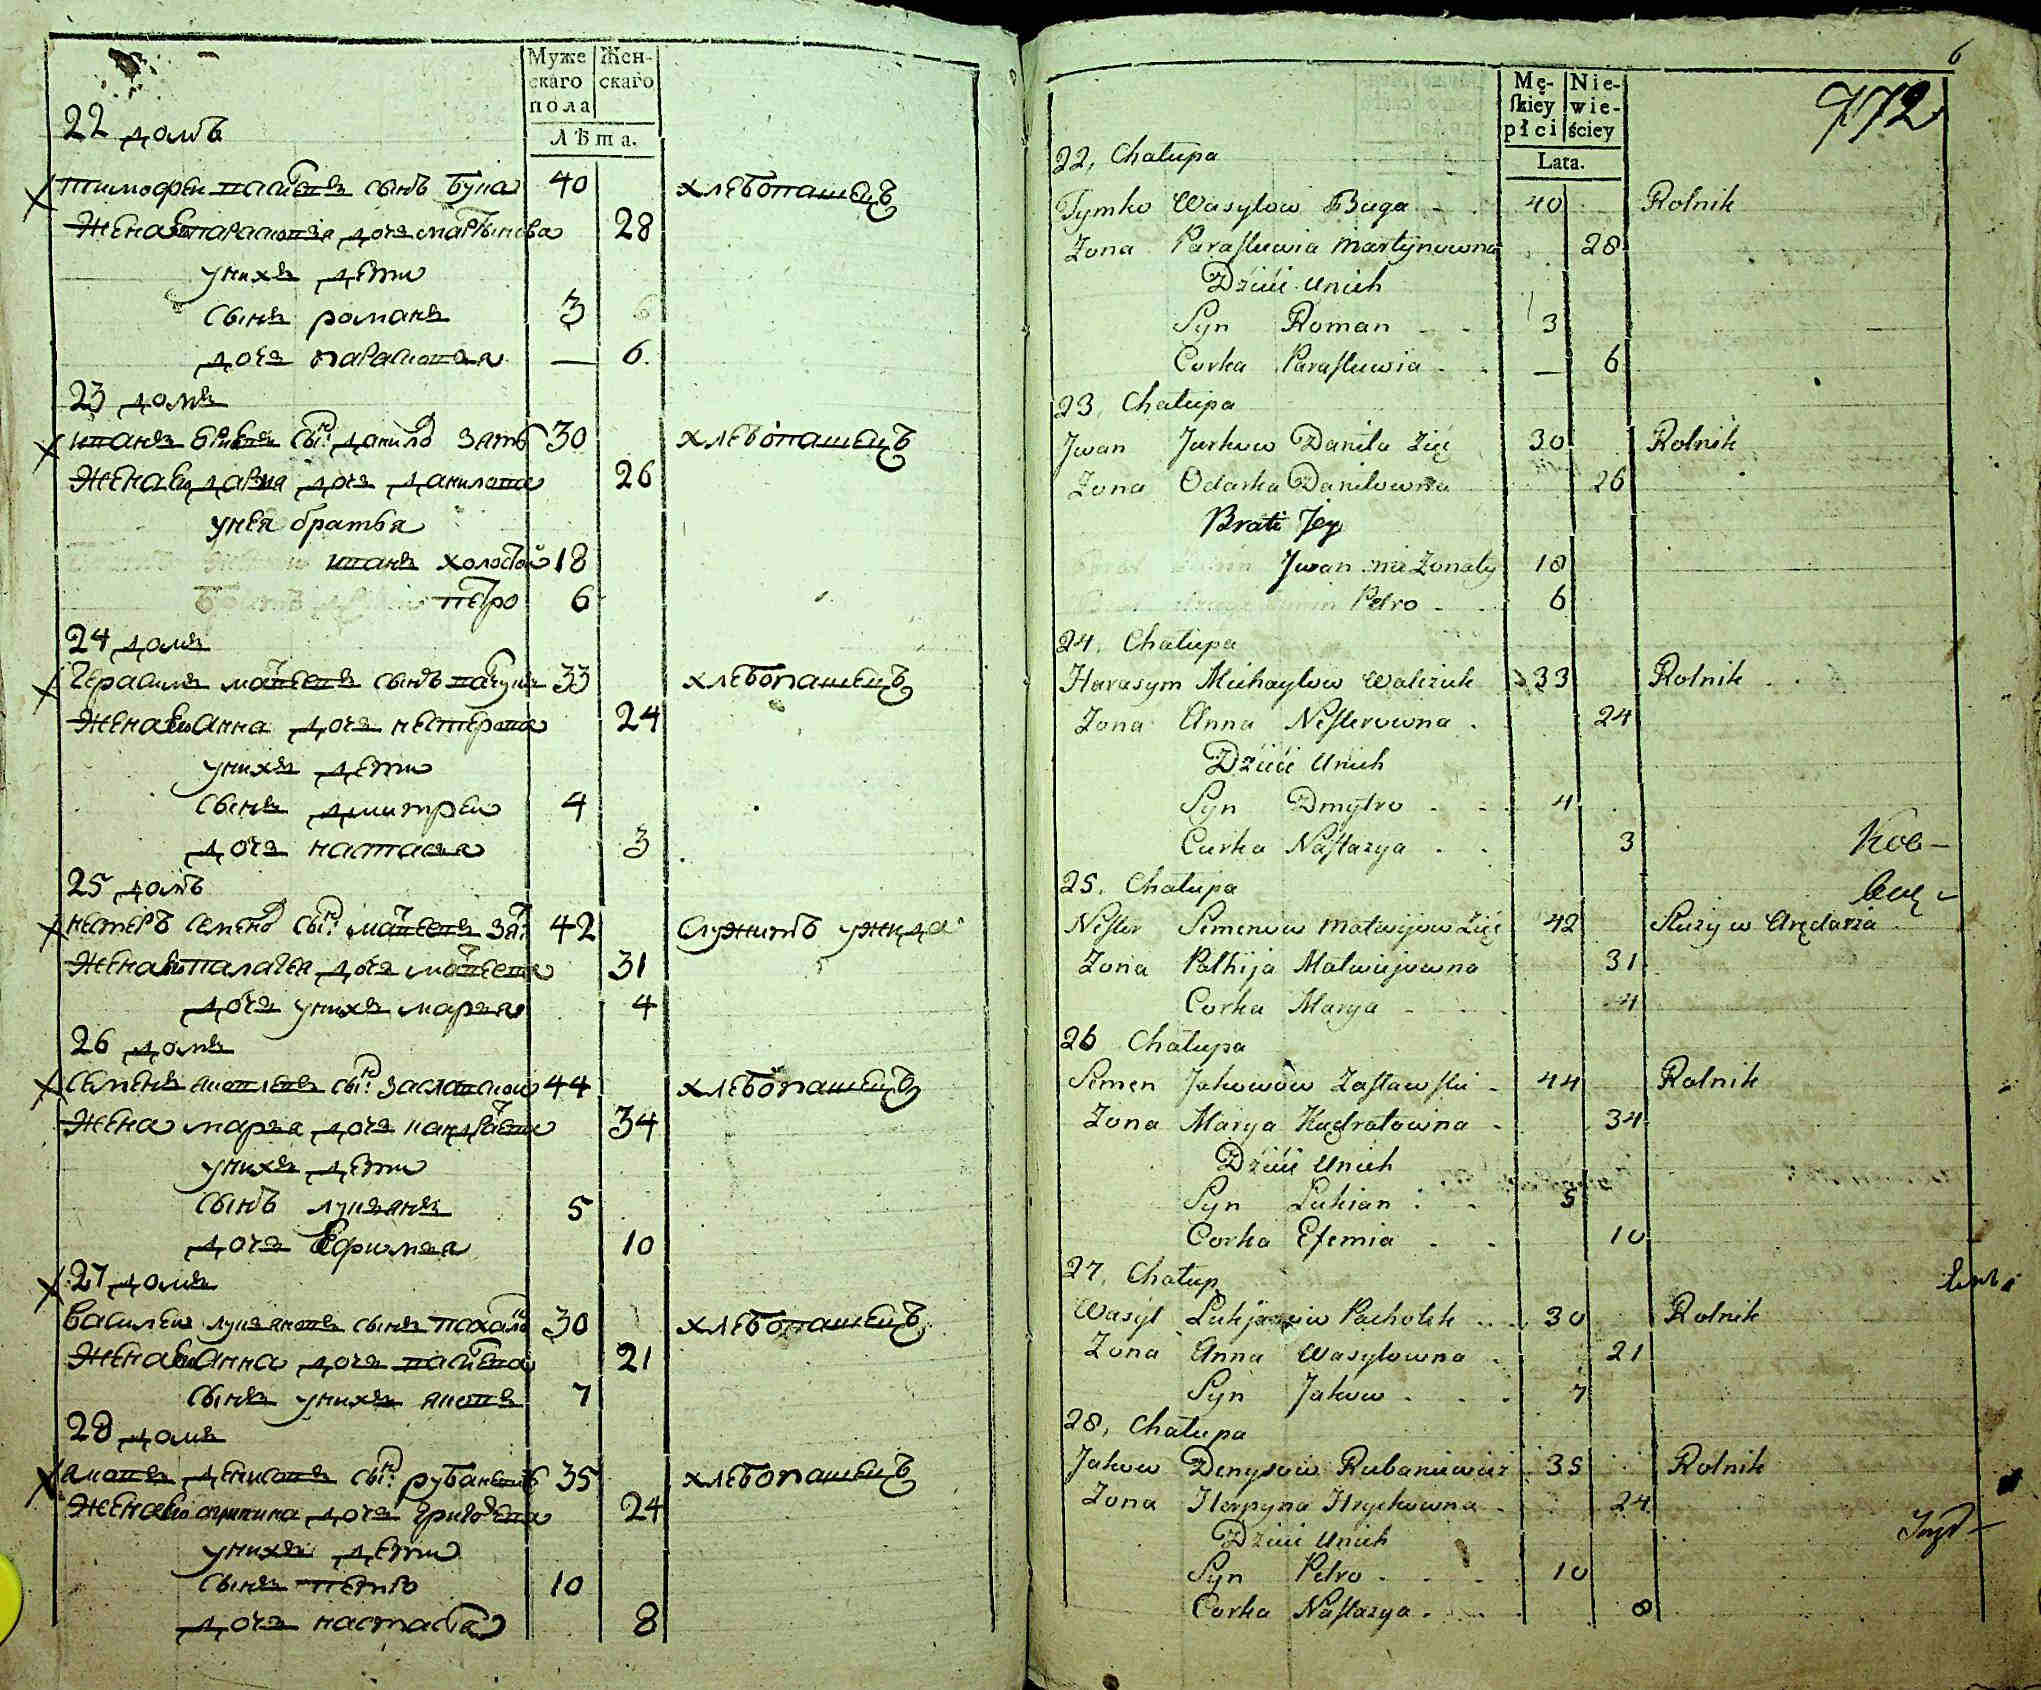 Муже
скаго
пола
Жен-
скаго
Лѣта.
22 домъ
Тимофеи сынъ Бука 40 хлебопашецъ
Жена ево дочь мартынова 28
у них дѣти
сынъ романъ 3
дочь параскевя — 6
23 домъ
иванъ сы: данило зять 30 хлебопашецъ
Жена ево дочь данилова 26
у нея братья
иванъ холостой 18
петро 6
24 домъ
Герасимъ сынъ 33 хлебопашецъ
Жена ево анна дочь нестерова 24
у них дѣти
сынъ дмитреи 4
дочь настася 3
25 домъ
нестеръ семено сы: матвеевъ зя: 42 служитъ у жида
Жена ево палагея дочь матвеева 31
дочь у них марья 4
26 домъ
семенъ яковлевъ сы: заславскои 44 хлебопашецъ
Жена марья дочь кандратева 34
у них дѣти
сынъ лукянъ 5
дочь Ефимья 10
27 домъ
Василеи лукяновъ сынъ 30 хлебопашецъ
Жена ево анна дочь васильева 21
сынъ у них яковъ 7
28 домъ
яковъ денисовъ сы: рубаневичь 35 хлебопашецъ
Жена ево дочь григорева 24
у них дѣти
сынъ петро 10
дочь настася 8
6
772
Mę-
ſkiey
płci
Nie-
wie-
ściey
Lata.
22, Chałupa
Tymko Wasylow Buga 40 Rolnik
Zona Paraskewia Martynowna 28
Dzieci u nich
Syn Roman 3
Corka Paraskewia — 6
23, Chałupa
Jwan Jurkow Daniła Zięć 30 Rolnik
Zona Odarka Daniłowna 26
Brati Jey
Jwan nie Zonaty 18
Petro 6
24, Chałupa
Harasym Michayłow 33 Rolnik
Zona Anna Nesterowna 24
Dzieci u nich
Syn Dmytro 4
Curka Nastazya 3
25, Chałupa
Nester Semenow Matwijow Zięć 42 Służy w Arędarza
Zona Pałhija Matwijowna 31
Corka Marya 4
26 Chałupa
Semen Jakowow Zasławski 44 Rolnik
Zona Marya Kądratowna 34
Dzieci u nich
Syn Lukian 5
Corka Efemia 10
27, Chałup
Wasyl Lukjanow Pachołek 30 Rolnik
Zona Anna Wasylowna 21
Syn Jakow 7
28, Chałupa
Jakow Denysow Rubaniewicz 35 Rolnik
Zona Horpyna Hryckowna 24
Dzieci u nich
Syn Petro 10
Corka Nastazya 8